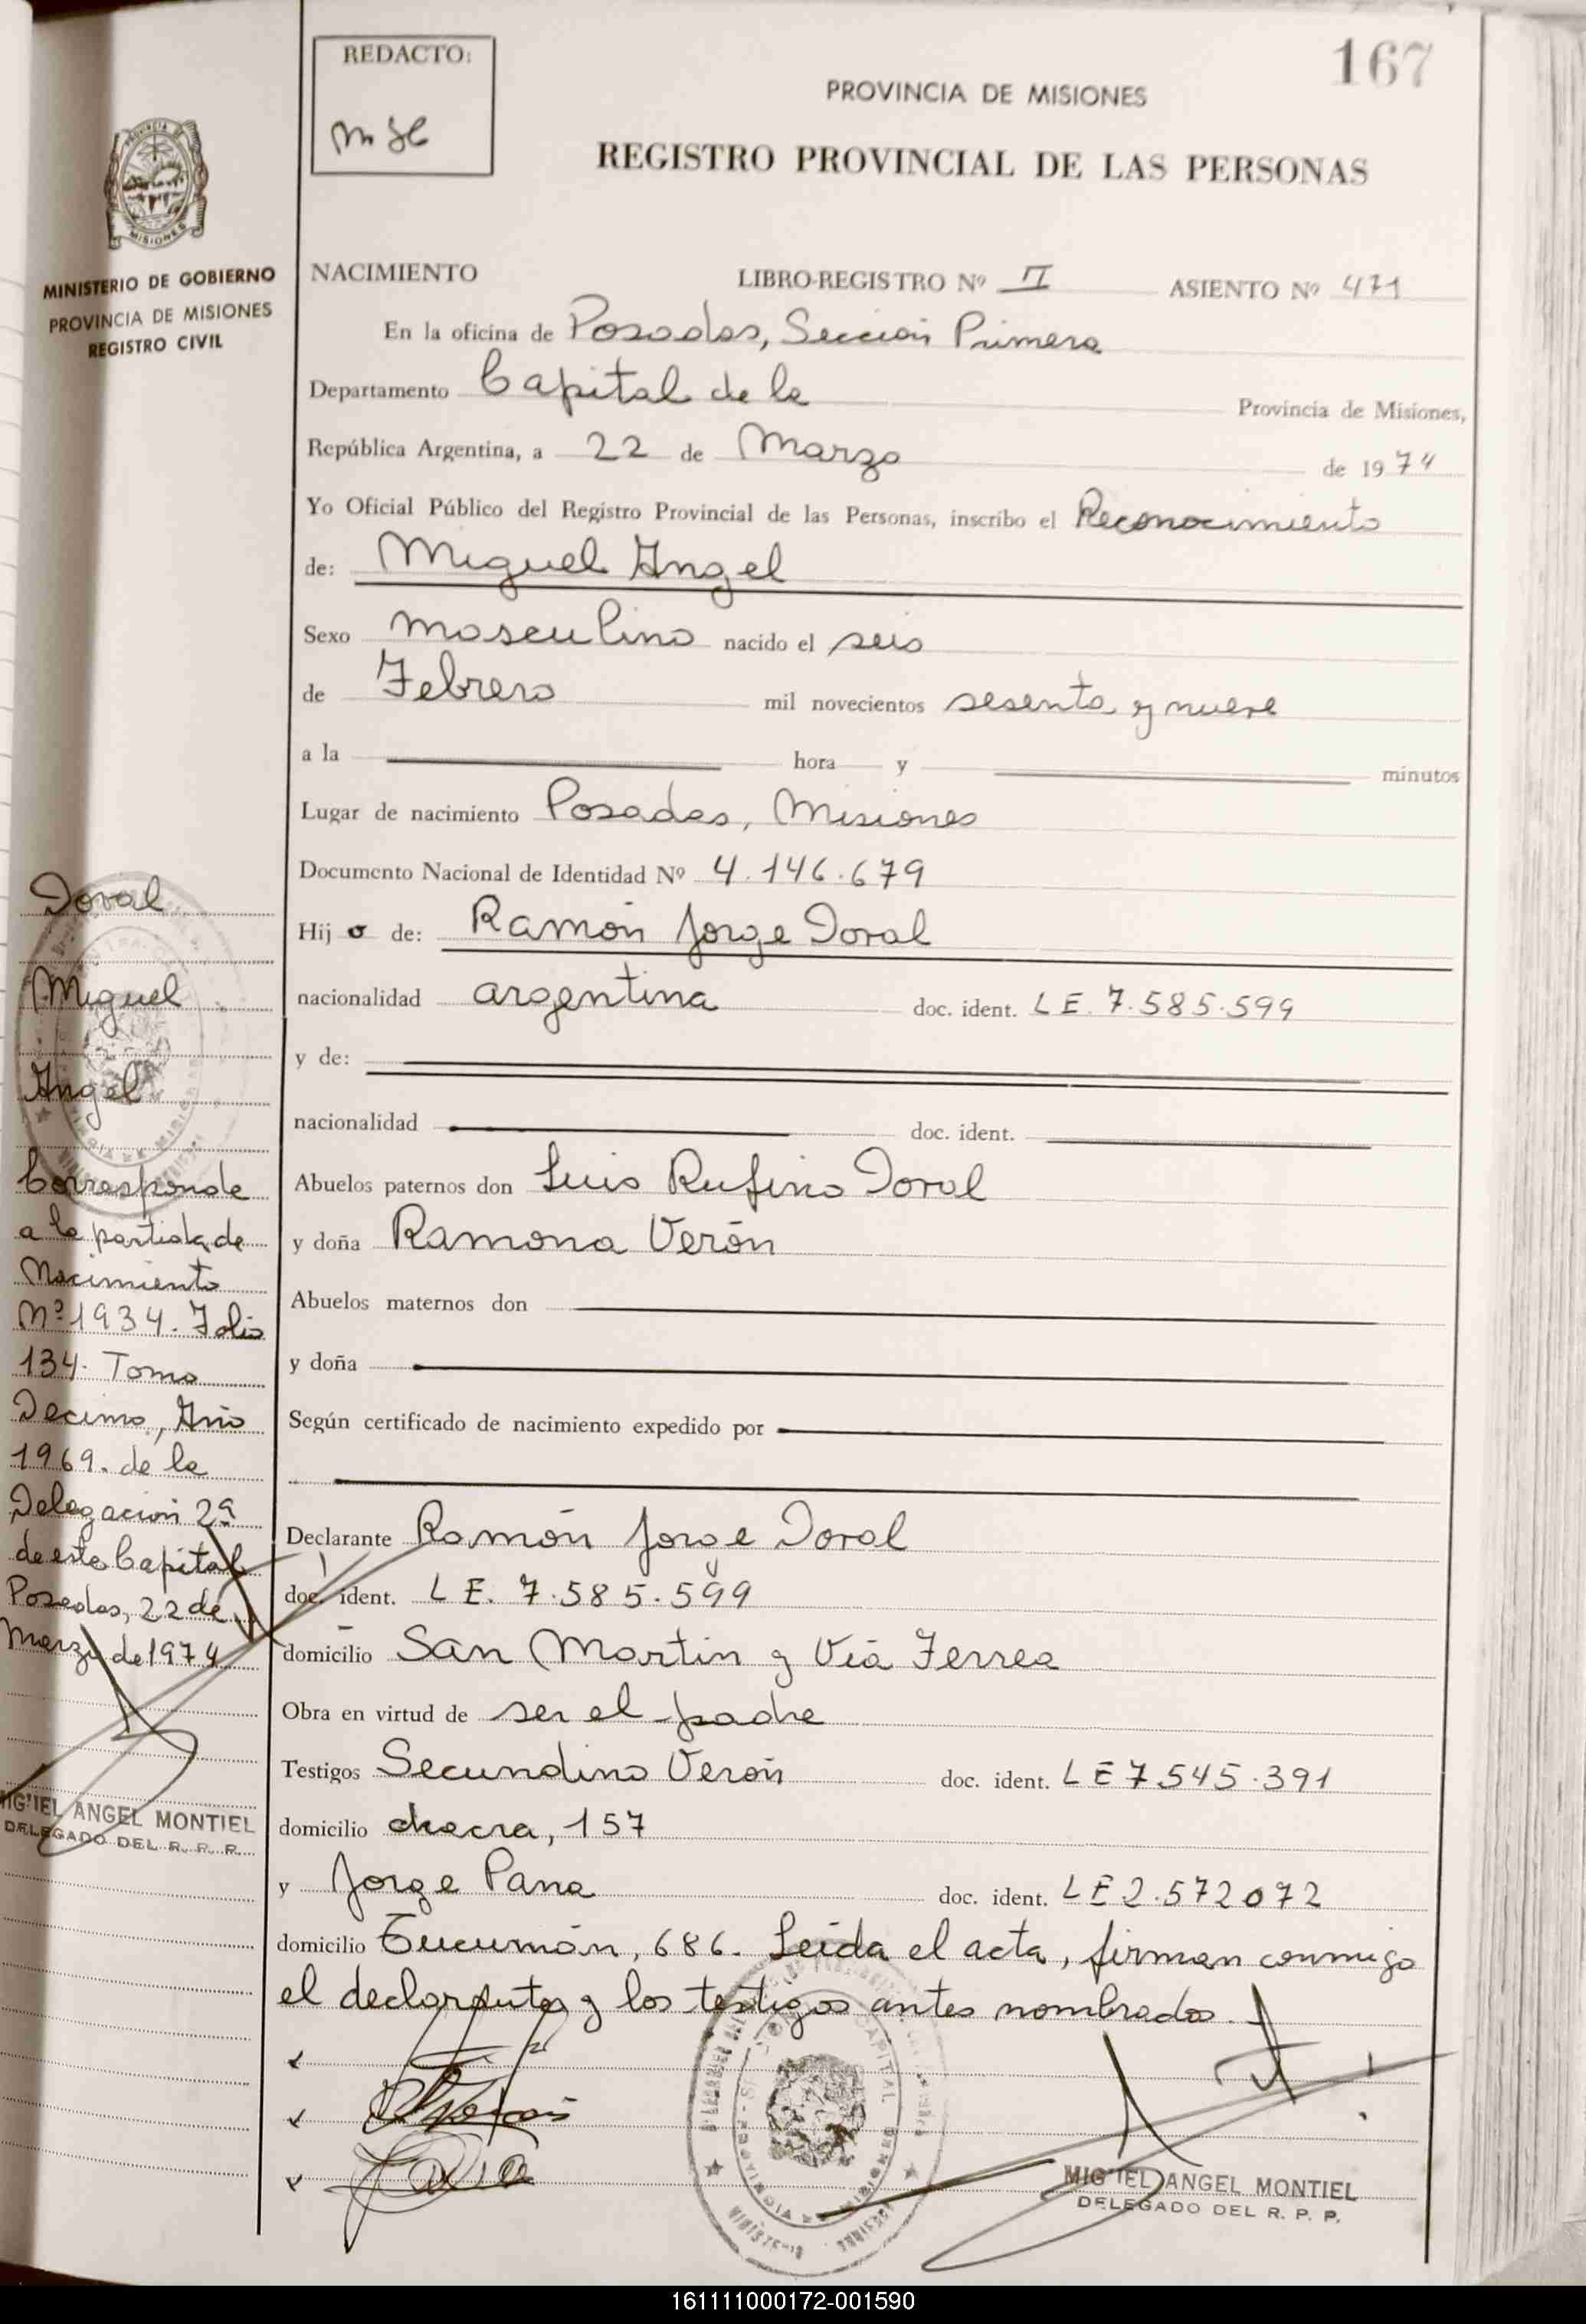 REDACTO:
167
PROVINCIA DE MISIONES
REGISTRO PROVINCIAL DE LAS PERSONAS
MINISTERIO DE GOBIERNO
PROVINCIA DE MISIONES
REGISTRO CIVIL
NACIMIENTO LIBRO-REGISTRO Nº II ASIENTO Nº 471
En la oficina de Posadas, Sección Primera
Departamento Capital de la Provincia de Misiones,
República Argentina, a 22 de Marzo de 1974
Yo Oficial Público del Registro Provincial de las Personas, inscribo el Reconocimiento
de: Miguel Angel
Sexo masculino nacido el seis
de Febrero mil novecientos sesenta y nueve
a la hora y minutos
Lugar de nacimiento Posadas, Misiones
Documento Nacional de Identidad Nº 4.146.679
Hijo de: Ramón Jorge Doral
nacionalidad argentina doc. ident. LE. 7.585.599
y de:
nacionalidad doc. ident.
Abuelos paternos don Luis Rufino Doral
y doña Ramona Verón
Abuelos maternos don
y doña
Según certificado de nacimiento expedido por
Declarante Ramón Jorge Doral
doc. ident. LE. 7.585.599
domicilio San Martín y Vía Ferrea
Obra en virtud de ser el padre
Testigos Secundino Verón doc. ident. LE 7.545.391
domicilio chacra, 157
y Jorge Pana doc. ident. LE 2.572072
domicilio Tucumán, 686. Leída el acta, firman conmigo
el declarante y los testigos antes nombrados.
MIG'IEL ANGEL MONTIEL
DELEGADO DEL R. P. P.
Doral
Miguel
Angel
Corresponde
a la partida de
Nacimiento
Nº 1934. Folio
134. Tomo
Decimo, Año
1969. de la
Delegación 2ª
de esta Capital
Posadas, 22 de
Marzo de 1974
MIG'IEL ANGEL MONTIEL
DELEGADO DEL R. P. P.
161111000172-001590